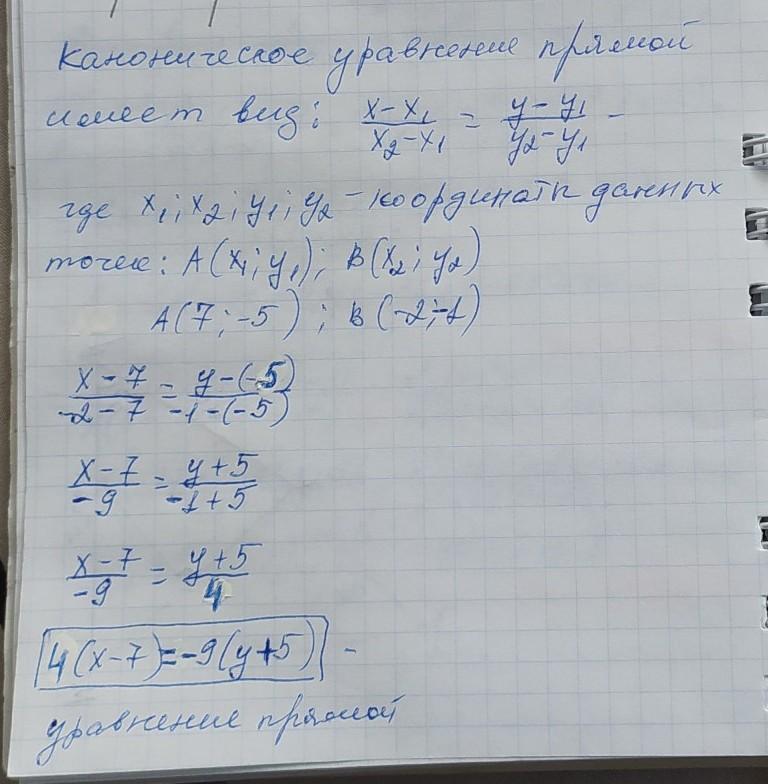 Каноническое уравнение прямой
имеет вид: (x-x₁)/(x₂-x₁) = (y-y₁)/(y₂-y₁) -
где x₁; x₂; y₁; y₂ - координаты данных
точек: A(x₁; y₁); B(x₂; y₂)
A(7; -5); B(-2; -1)
(x-7)/(-2-7) = (y-(-5))/(-1-(-5))
(x-7)/(-9) = (y+5)/(-1+5)
(x-7)/(-9) = (y+5)/4
4(x-7)=-9(y+5) -
уравнение прямой